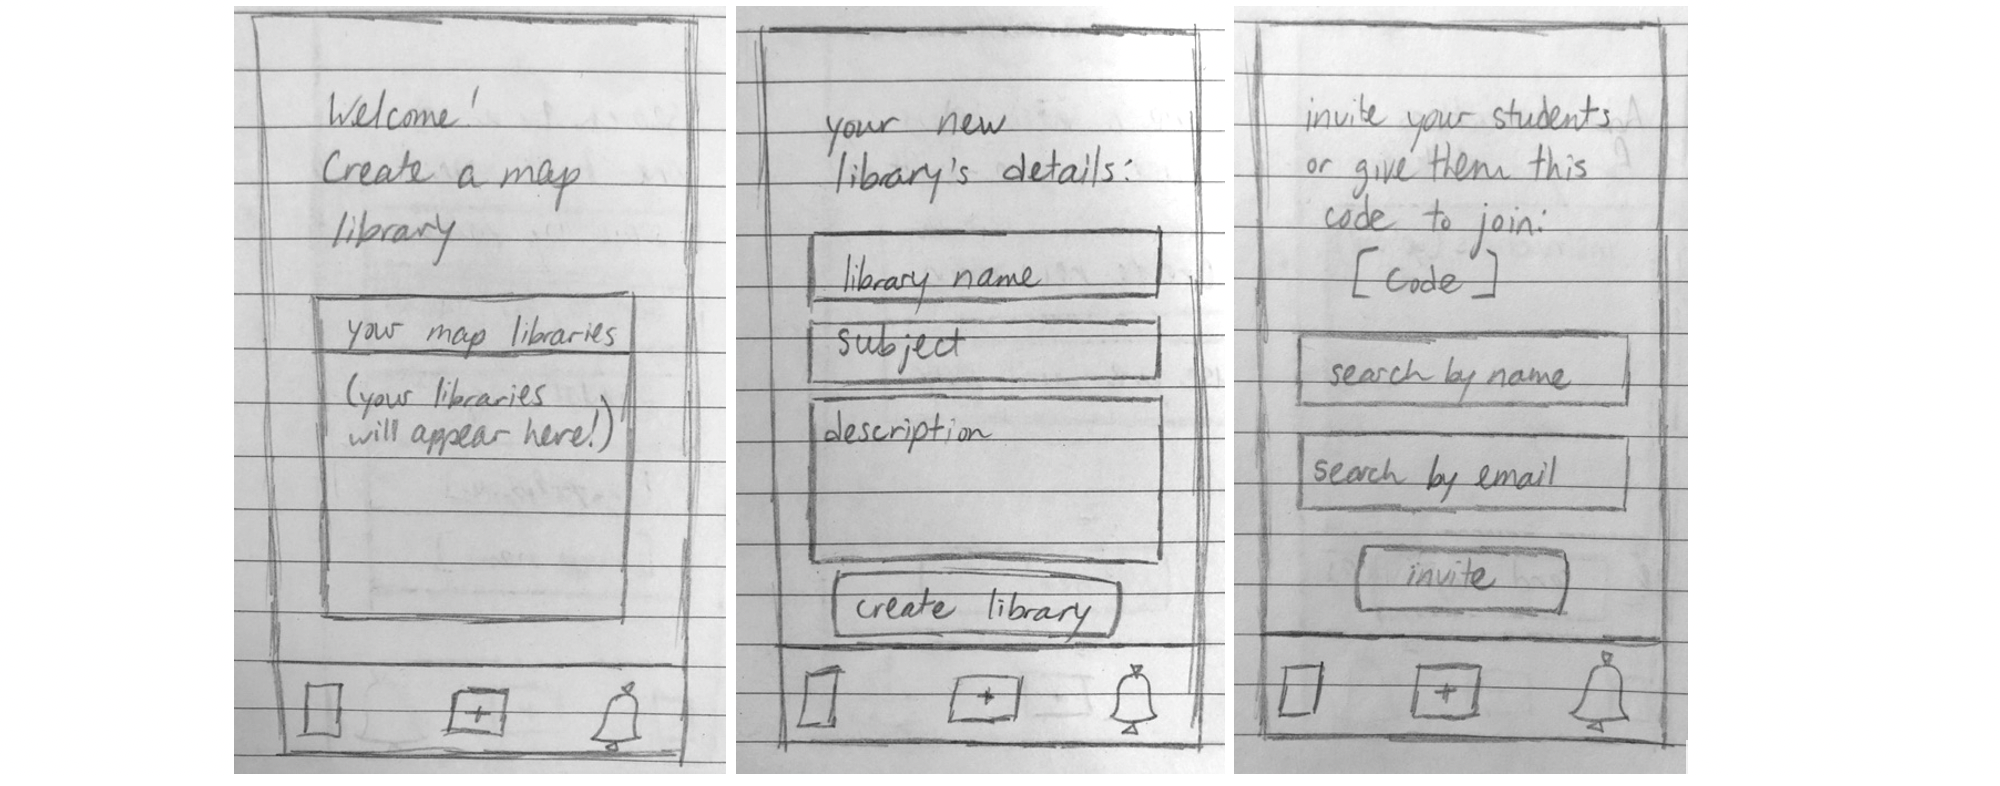 Welcome!
Create a map
library
your map libraries
(your libraries
will appear here!)
your new
library's details:
library name
subject
description
create library
+
invite your students
or give them this
code to join:
[code]
search by name
search by email
invite
+